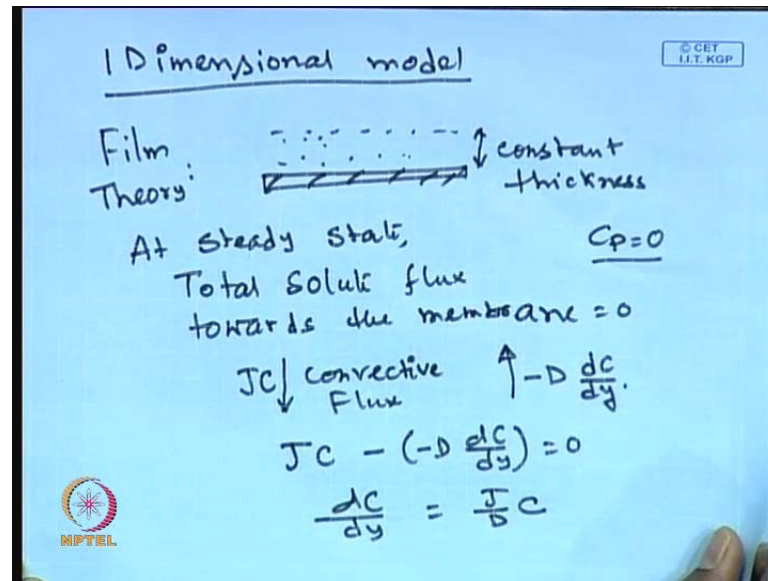 1 Dimensional model
© CET
I.I.T. KGP
Film
Theory:
constant
thickness
At steady stati,
Cp=0
Total Soluti flux
towards the membrane = 0
JC↓ Convective Flux ↑ -D dC/dy.
JC - (-D dC/dy) = 0
dC/dy = J/D C
NPTEL